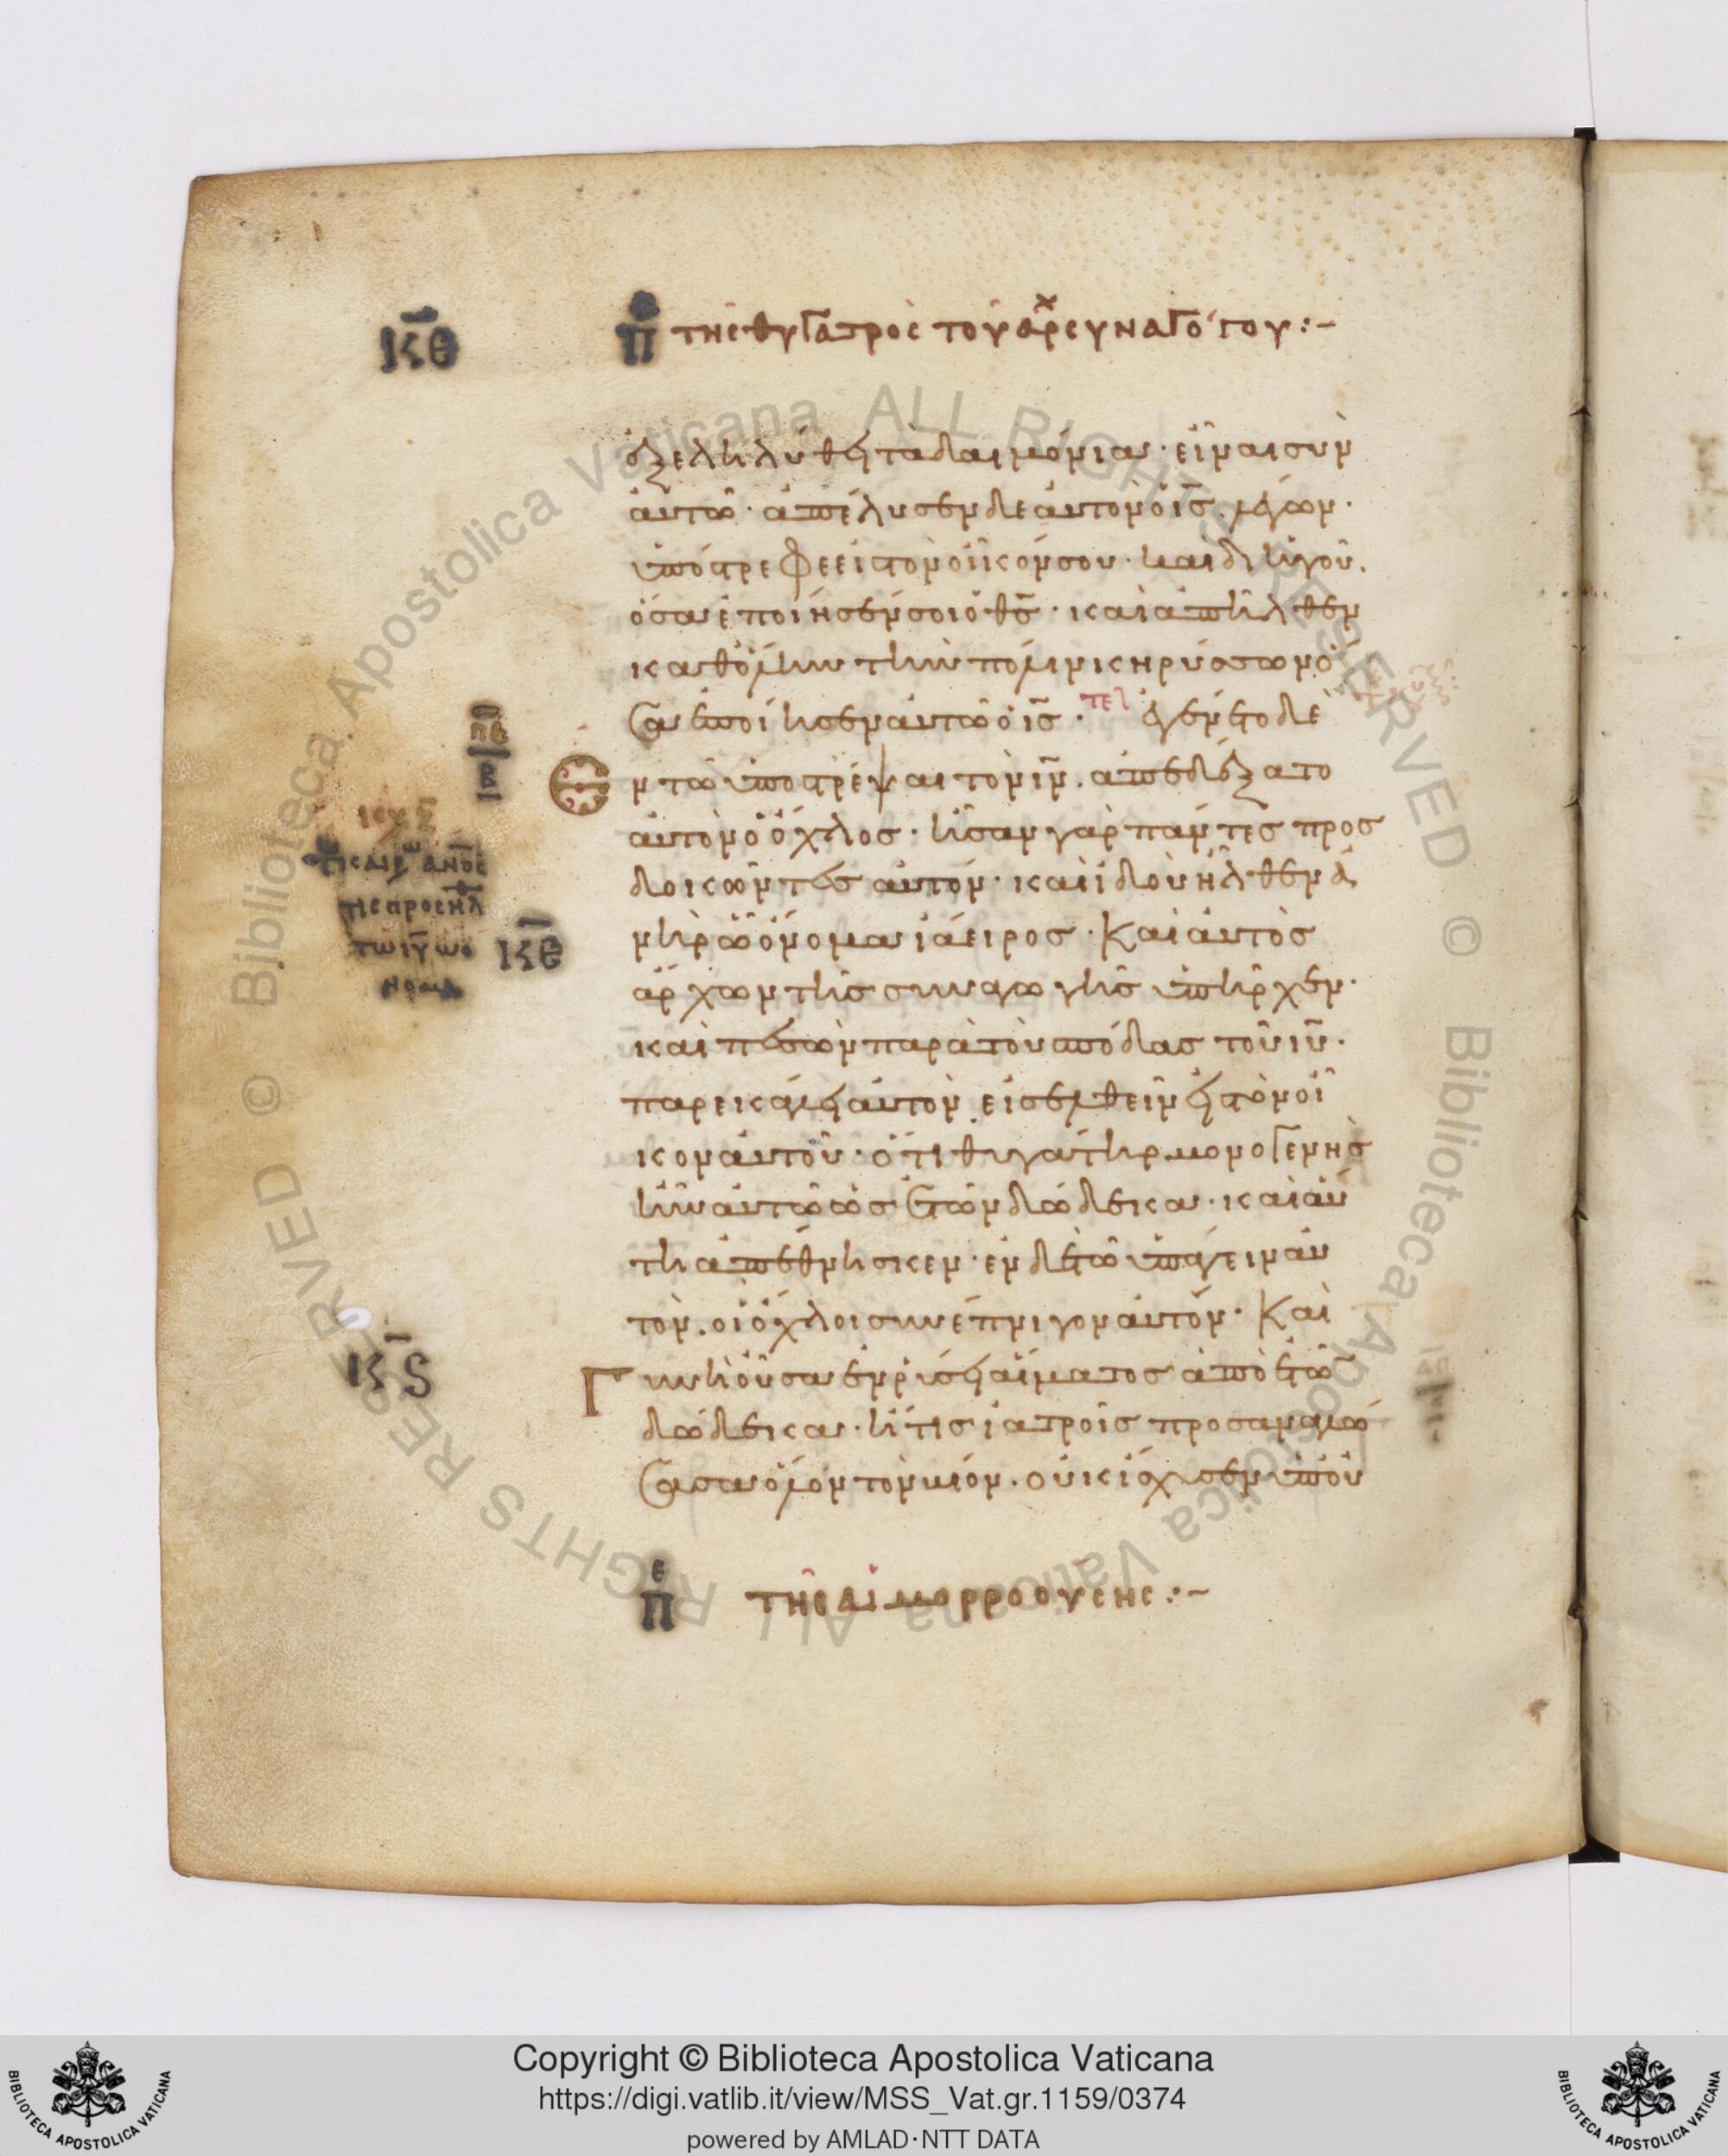 ΚΘ Π ΤΗΣ ΘΥΓΑΤΡΟΣ ΤΟΥ ΑΡΧΣΥΝΑΓΟΓΟΥ:~
ἐξεληλύθει τὰ δαιμόνια· εἶναι σὺν
ἀυτῶ· ἀπέλυσεν δε ἀυτὸν ὁ ις λέγων·
ὑπόστρεφε εἰς τὸν οἶκόν σου· καὶ διηγοῦ.
ὅσα ἐποίησέν σοι ὁ θς· καὶ ἀπῆλθεν
καθόλην τὴν πόλιν κηρύσσων ὁ
σα ἐποίησεν ἀυτῶ ὁ ις· τελ ἐγένετο δὲ
ν τῶ ὑποστρέψαι τὸν ιν. ἀπεδέξατο
ἀυτὸν ὁ ὄχλος· ἦσαν γὰρ πάντες προσ
δοκῶντες αυτόν· καὶ ἰδοὺ ἦλθεν ἀ
νὴρ ὧ ὄνομα ϊάειρος· Καὶ ἀυτὸς
ἄρχων τῆς συναγωγῆς ὑπῆρχεν·
καὶ πεσὼν παρὰ τοὺς πόδας τοῦ ιυ·
παρεκάλει ἀυτὸν εἰσελθεῖν εἰς τὸν οἶ
κον ἀυτοῦ· ὅτι θυγάτηρ μονογενὴς
ἦν ἀυτῶ ὡς ἐτῶν δώδεκα· καὶ ἀυ
τη ἀπέθνησκεν· ἐν δὲ τῶ ὑπάγειν ἀυ
τὸν. οἱ ὄχλοι συνέπνιγον ἀυτόν· Καὶ
Γυνὴ οὖσα ἐν ρύσει αἵματος ἀπὸ ἐτῶ
δώδεκα· ἥτις ἰατροῖς προσαναλώ
σασα ὅλον τὸν βιόν. οὐκ ἴσχυσεν ὑπου
ΠΒ
Β
ΚΕ
ΚϚ
Π ΤΗΣ ΑΙΜΟΡΡΟΟΥΣΗΣ:~
Copyright © Biblioteca Apostolica Vaticana
https://digi.vatlib.it/view/MSS_Vat.gr.1159/0374
powered by AMLAD·NTT DATA
BIBLIOTECA APOSTOLICA VATICANA
BIBLIOTECA APOSTOLICA VATICANA
© Biblioteca Apostolica Vaticana ALL RIGHTS RESERVED
© Biblioteca Apostolica Vaticana ALL RIGHTS RESERVED